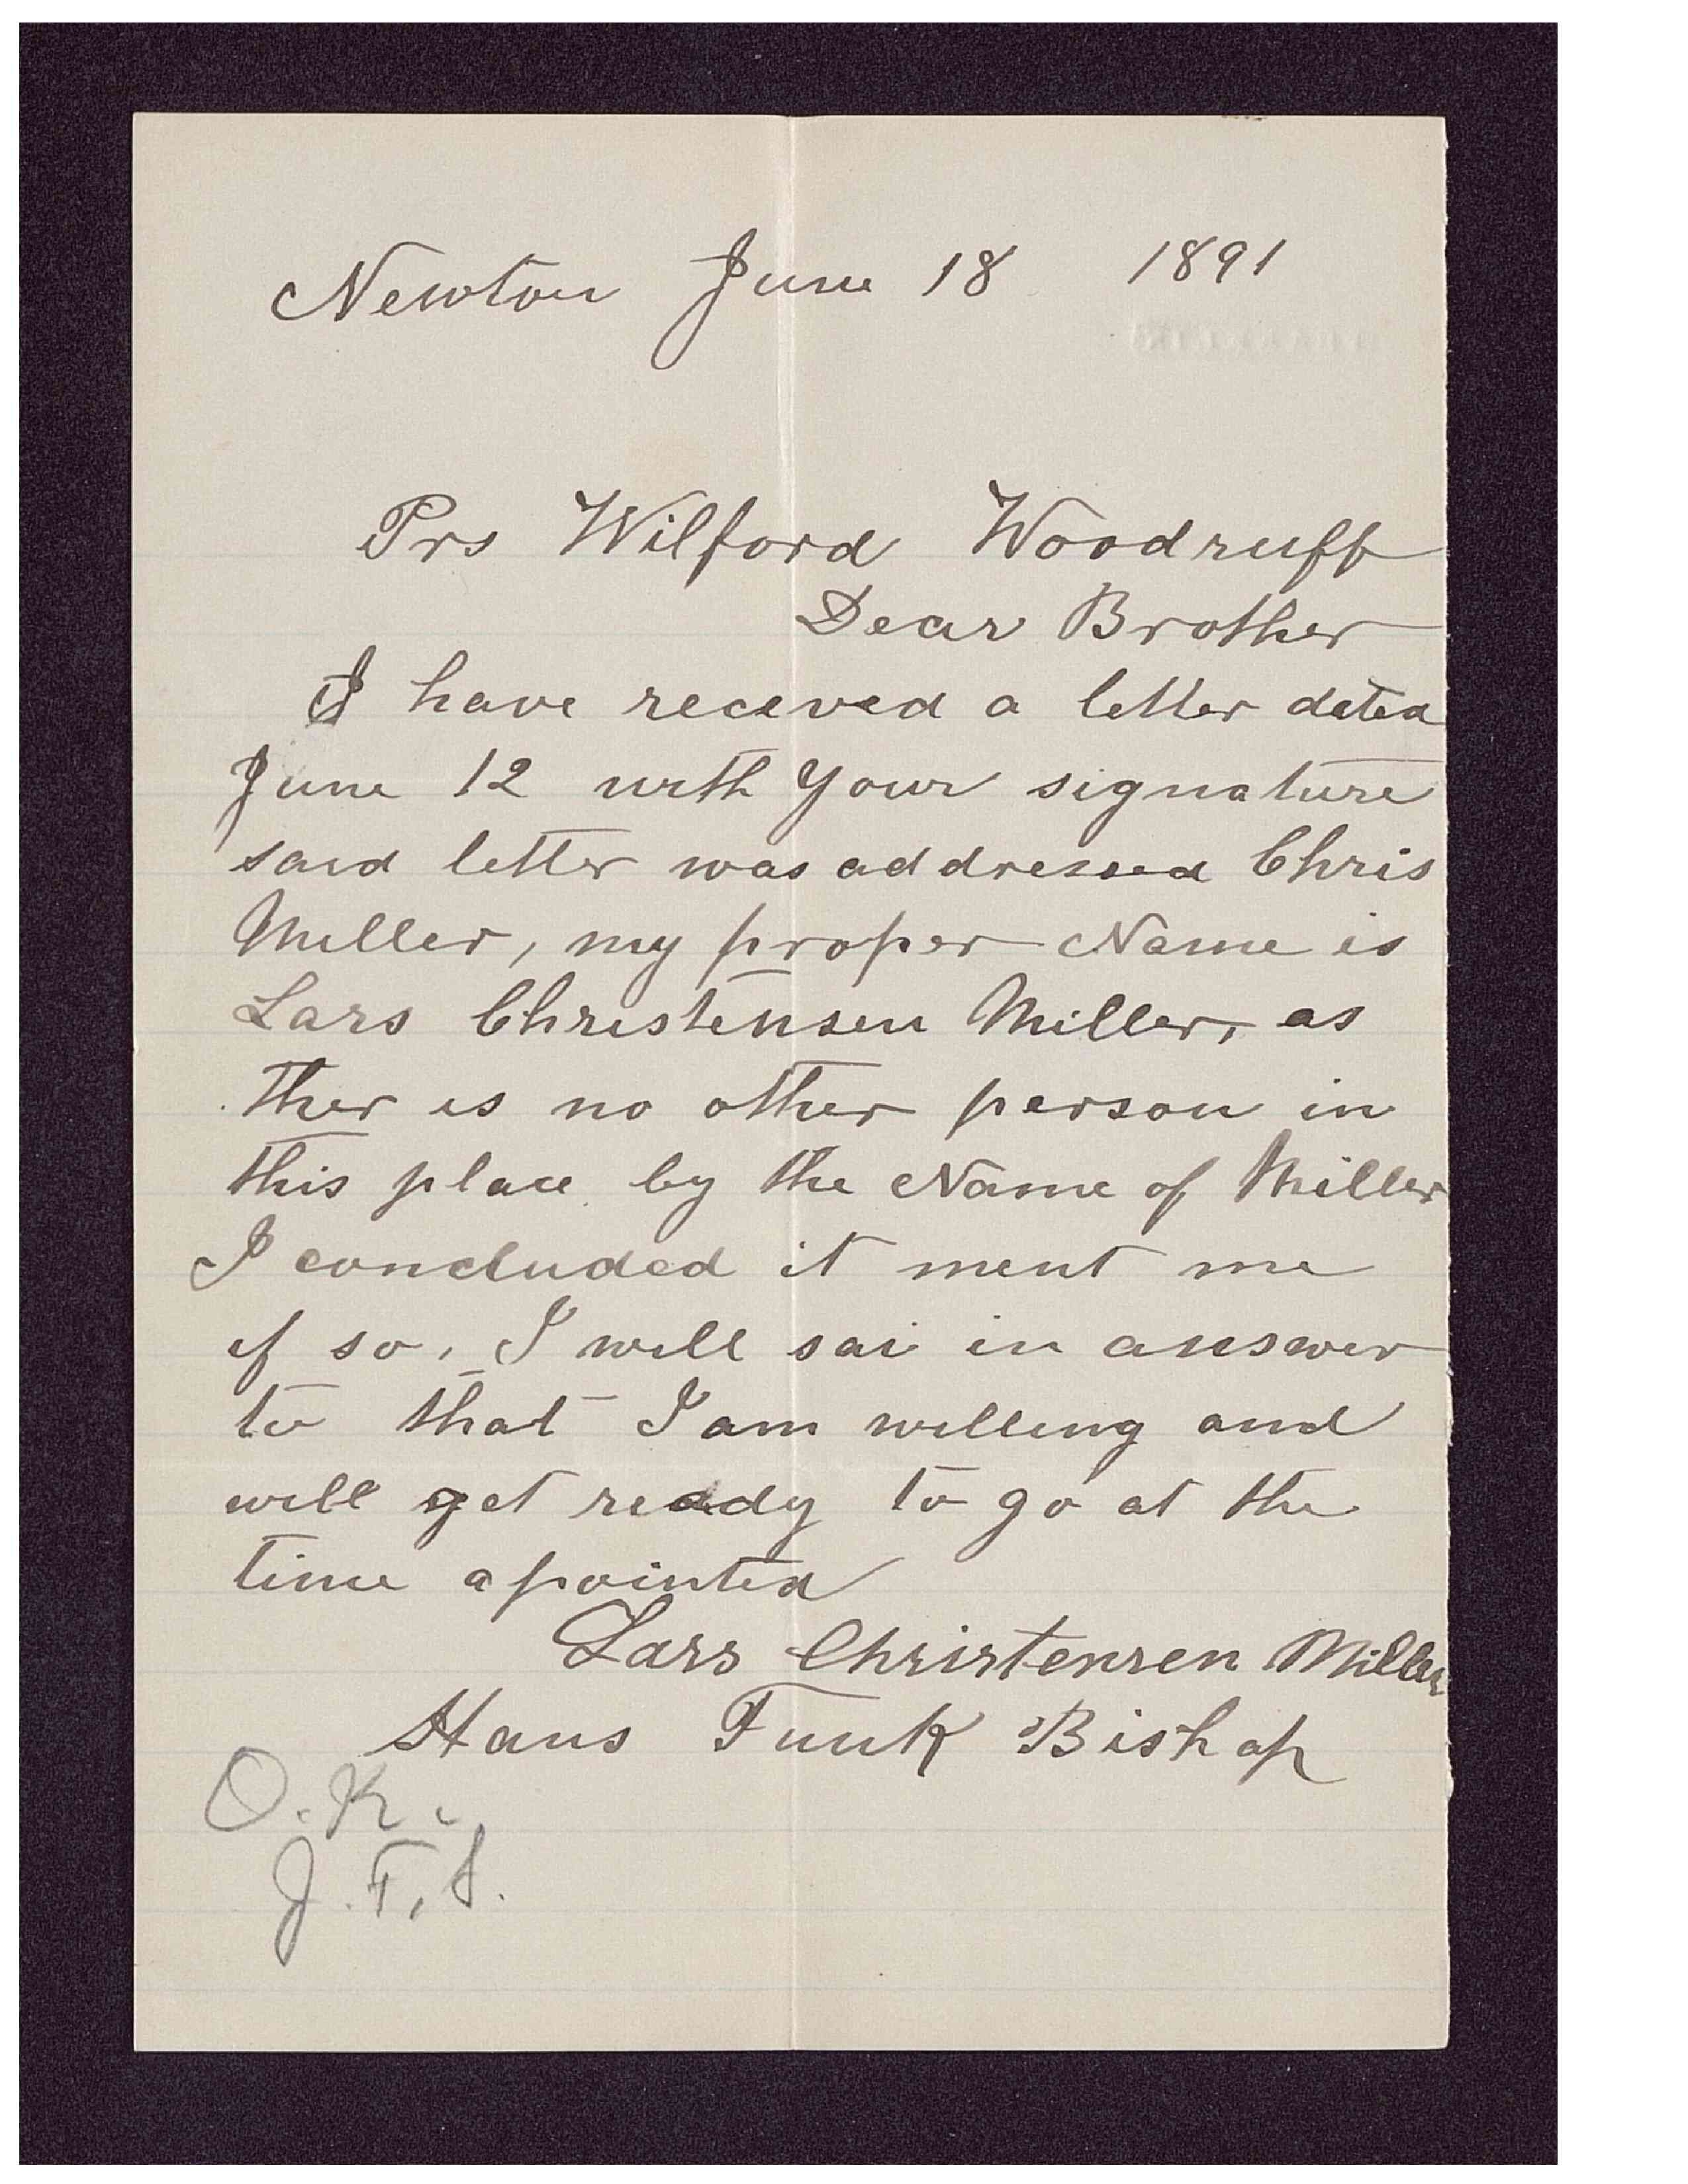 Newton June 18 1891
Prs Wilford Woodruff
Dear Brother
I have receved a letter dated
June 12 with Your signature
said letter was addressed Chris
Miller, my proper Name is
Lars Christensen Miller, as
ther is no other person in
this place by the Name of Miller
I concluded it ment me
if so, I will sai in answer
to that I am willing and
will get ready to go at the
time apointed
Lars Christensen Miller
Hans Funk Bishop
O.K.
J.F.S.